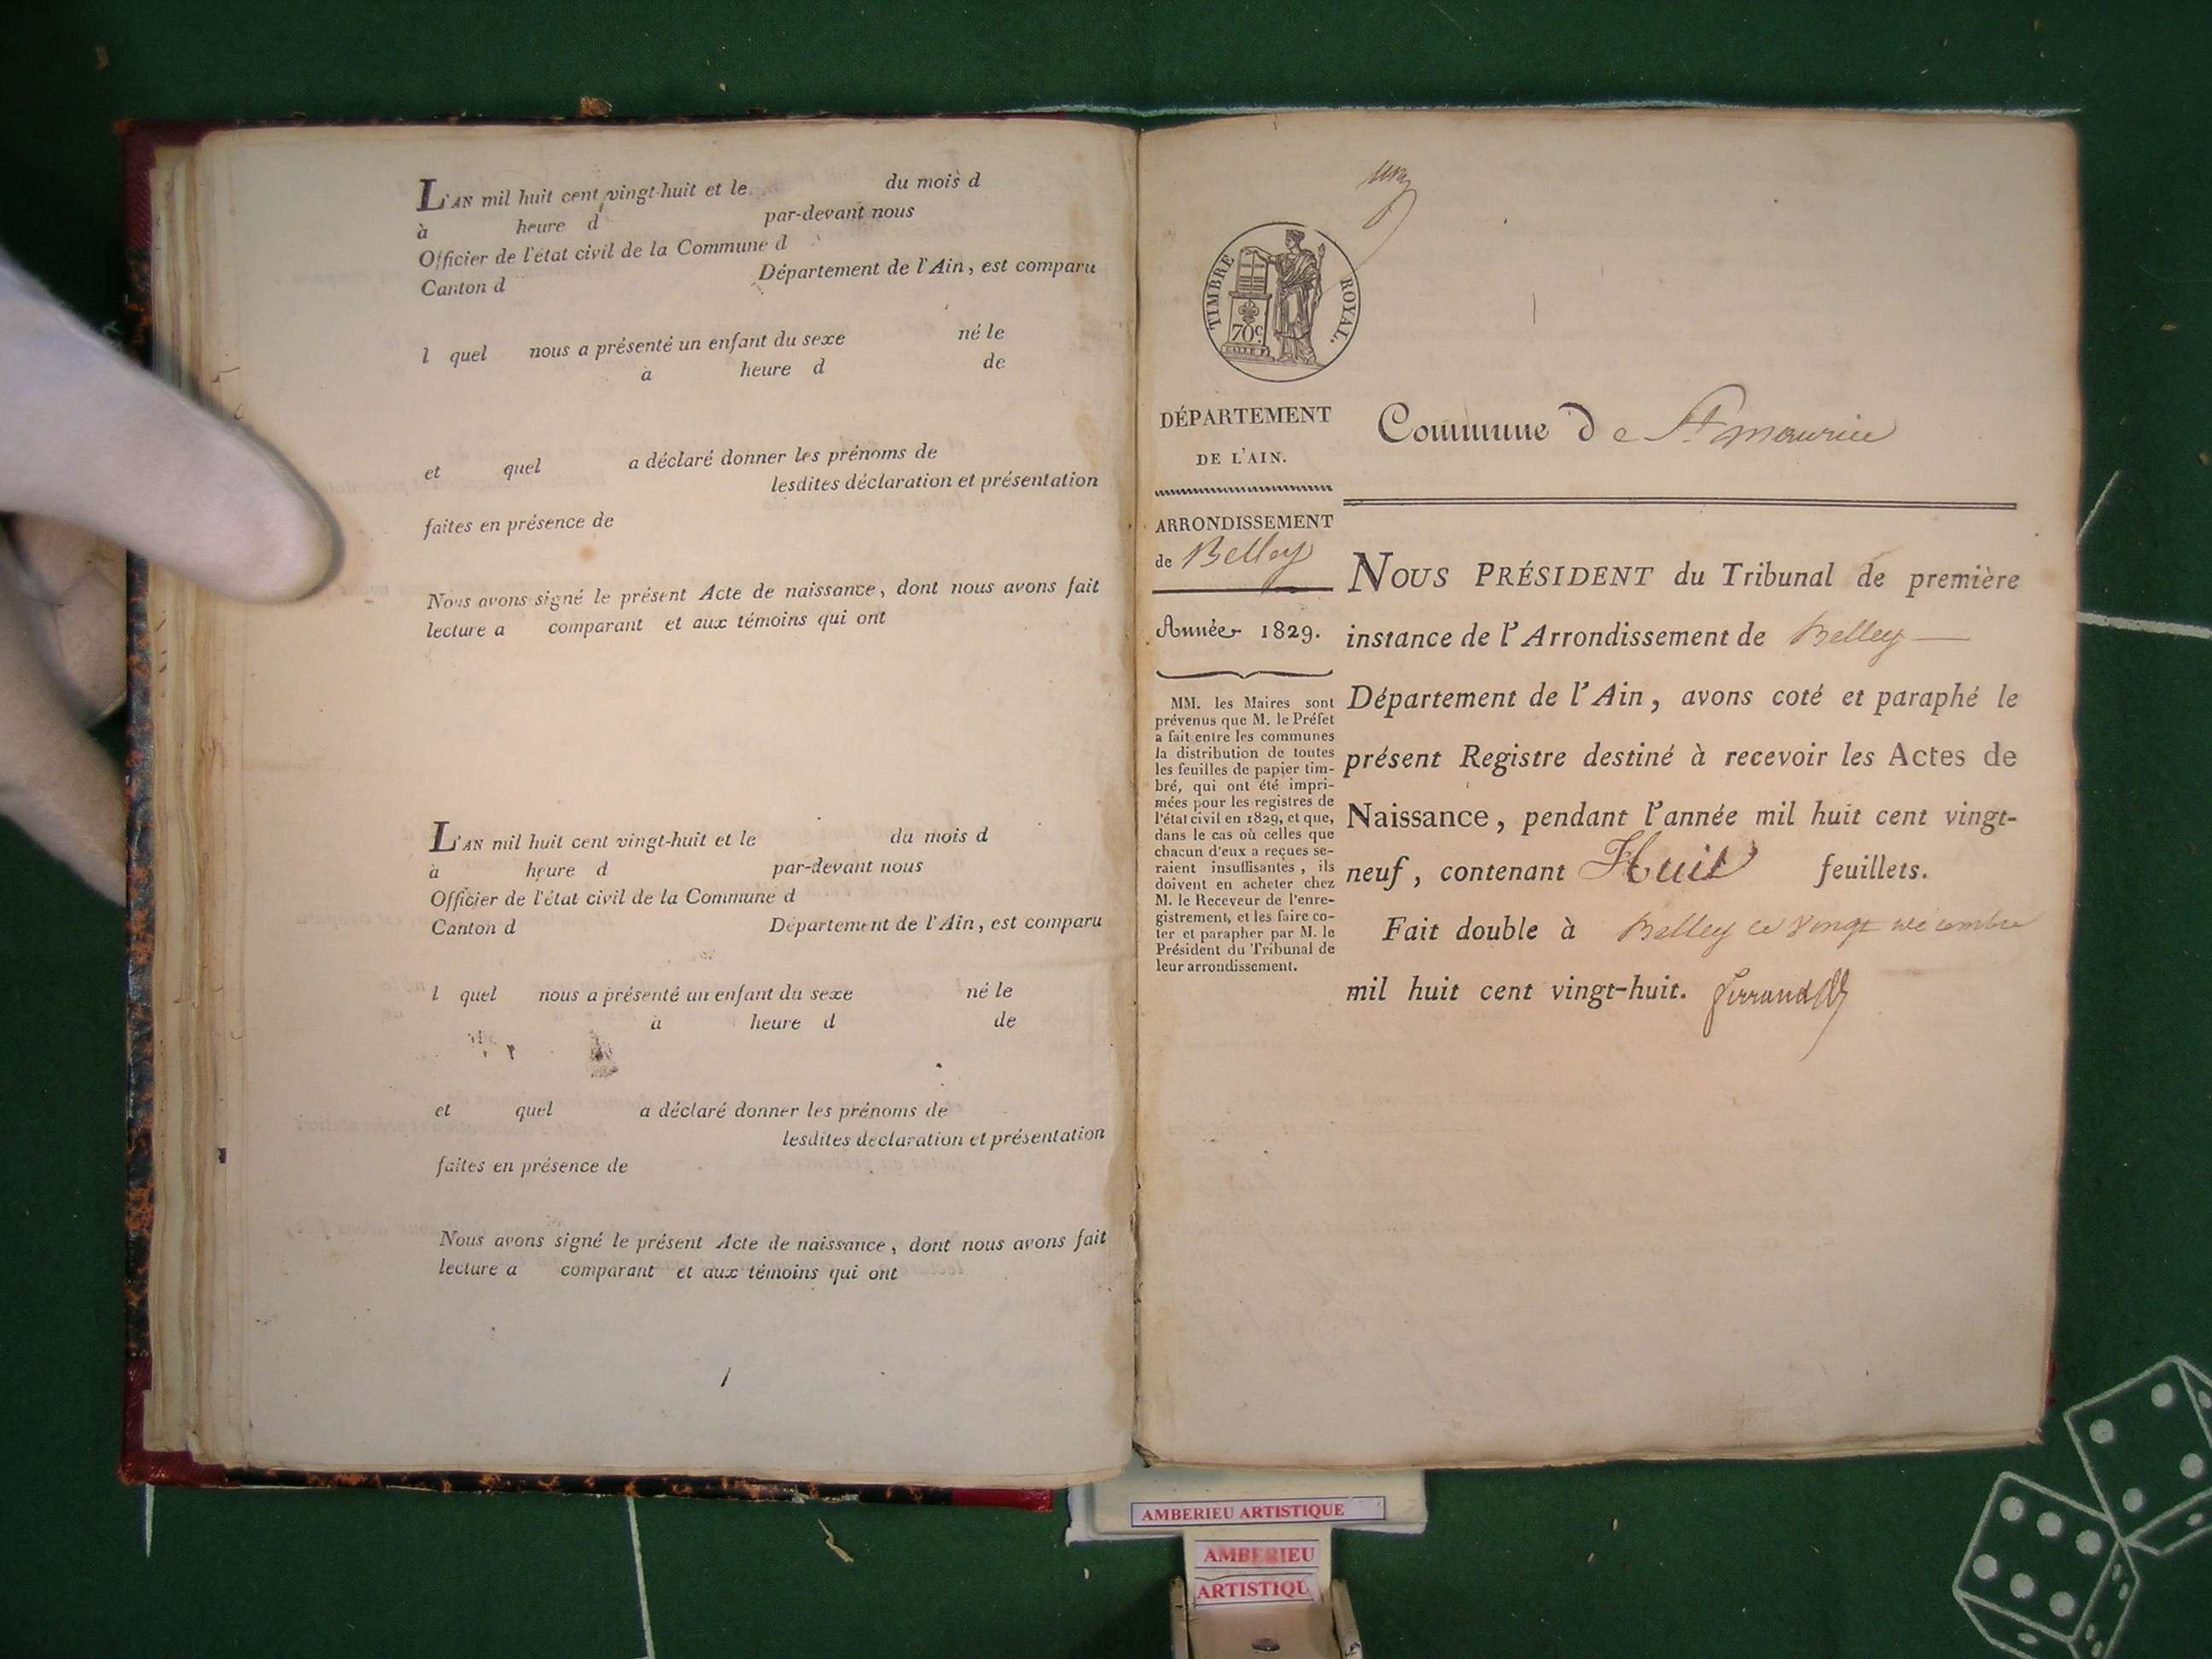 L'AN mil huit cent vingt-huit et le du mois d
à heure d par-devant nous
Officier de l'état civil de la Commune d
Canton d Département de l'Ain, est comparu
l quel nous a présenté un enfant du sexe né le
à heure d de
et quel a déclaré donner les prénoms de
lesdites déclaration et présentation
faites en présence de
Nous avons signé le présent Acte de naissance, dont nous avons fait
lecture a comparant et aux témoins qui ont
L'AN mil huit cent vingt-huit et le du mois d
à heure d par-devant nous
Officier de l'état civil de la Commune d
Canton d Département de l'Ain, est comparu
l quel nous a présenté un enfant du sexe né le
à heure d de
et quel a déclaré donner les prénoms de
lesdites déclaration et présentation
faites en présence de
Nous avons signé le présent Acte de naissance, dont nous avons fait
lecture a comparant et aux témoins qui ont
TIMBRE ROYAL.
70c
DÉPARTEMENT
DE L'AIN.
ARRONDISSEMENT
de Belley
Année 1829.
MM. les Maires sont
prévenus que M. le Préfet
a fait entre les communes
la distribution de toutes
les feuilles de papier tim-
bré, qui ont été impri-
mées pour les registres de
l'état civil en 1829, et que,
dans le cas où celles que
chacun d'eux a reçues se-
raient insuffisantes, ils
doivent en acheter chez
M. le Receveur de l'enre-
gistrement, et les faire co-
ter et parapher par M. le
Président du Tribunal de
leur arrondissement.
Commune de St maurice
NOUS PRÉSIDENT du Tribunal de première
instance de l'Arrondissement de Belley
Département de l'Ain, avons coté et paraphé le
présent Registre destiné à recevoir les Actes de
Naissance, pendant l'année mil huit cent vingt-
neuf, contenant Huit feuillets.
Fait double à Belley ce vingt décembre
mil huit cent vingt-huit.
AMBERIEU ARTISTIQUE
AMBERIEU
ARTISTIQU